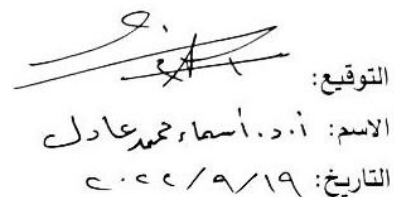 التوقيع:
الاسم: أ.د. أسماء محمد عادل
التاريخ: ١٩/٩/٢٠٢٢